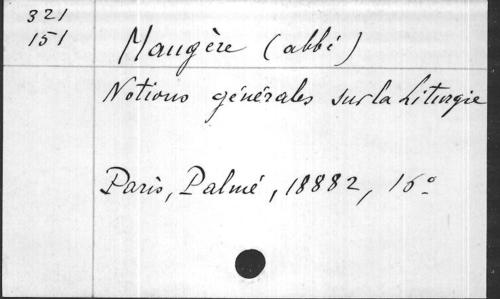 321
151
Maugère (abbé)
Notions générales sur la Liturgie
Paris, Palmé, 18882, 16º